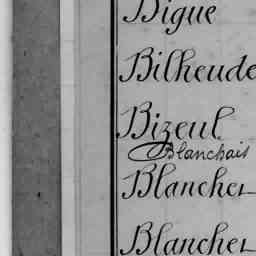 Digue
Bilheude
Bizeul
Blanchais
Blancher
Blancher